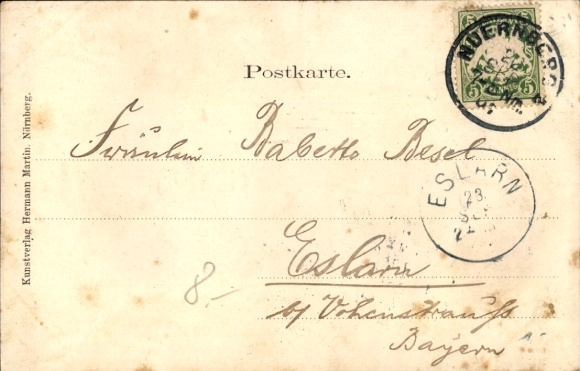 NUERNBERG 2
5 5
Postkarte.
Fräulein Babette Besel
ESLARN
23.
SEP
Eslarn
b/ Vohenstrauß
Bayern
8.-
Kunstverlag Hermann Martin. Nürnberg.